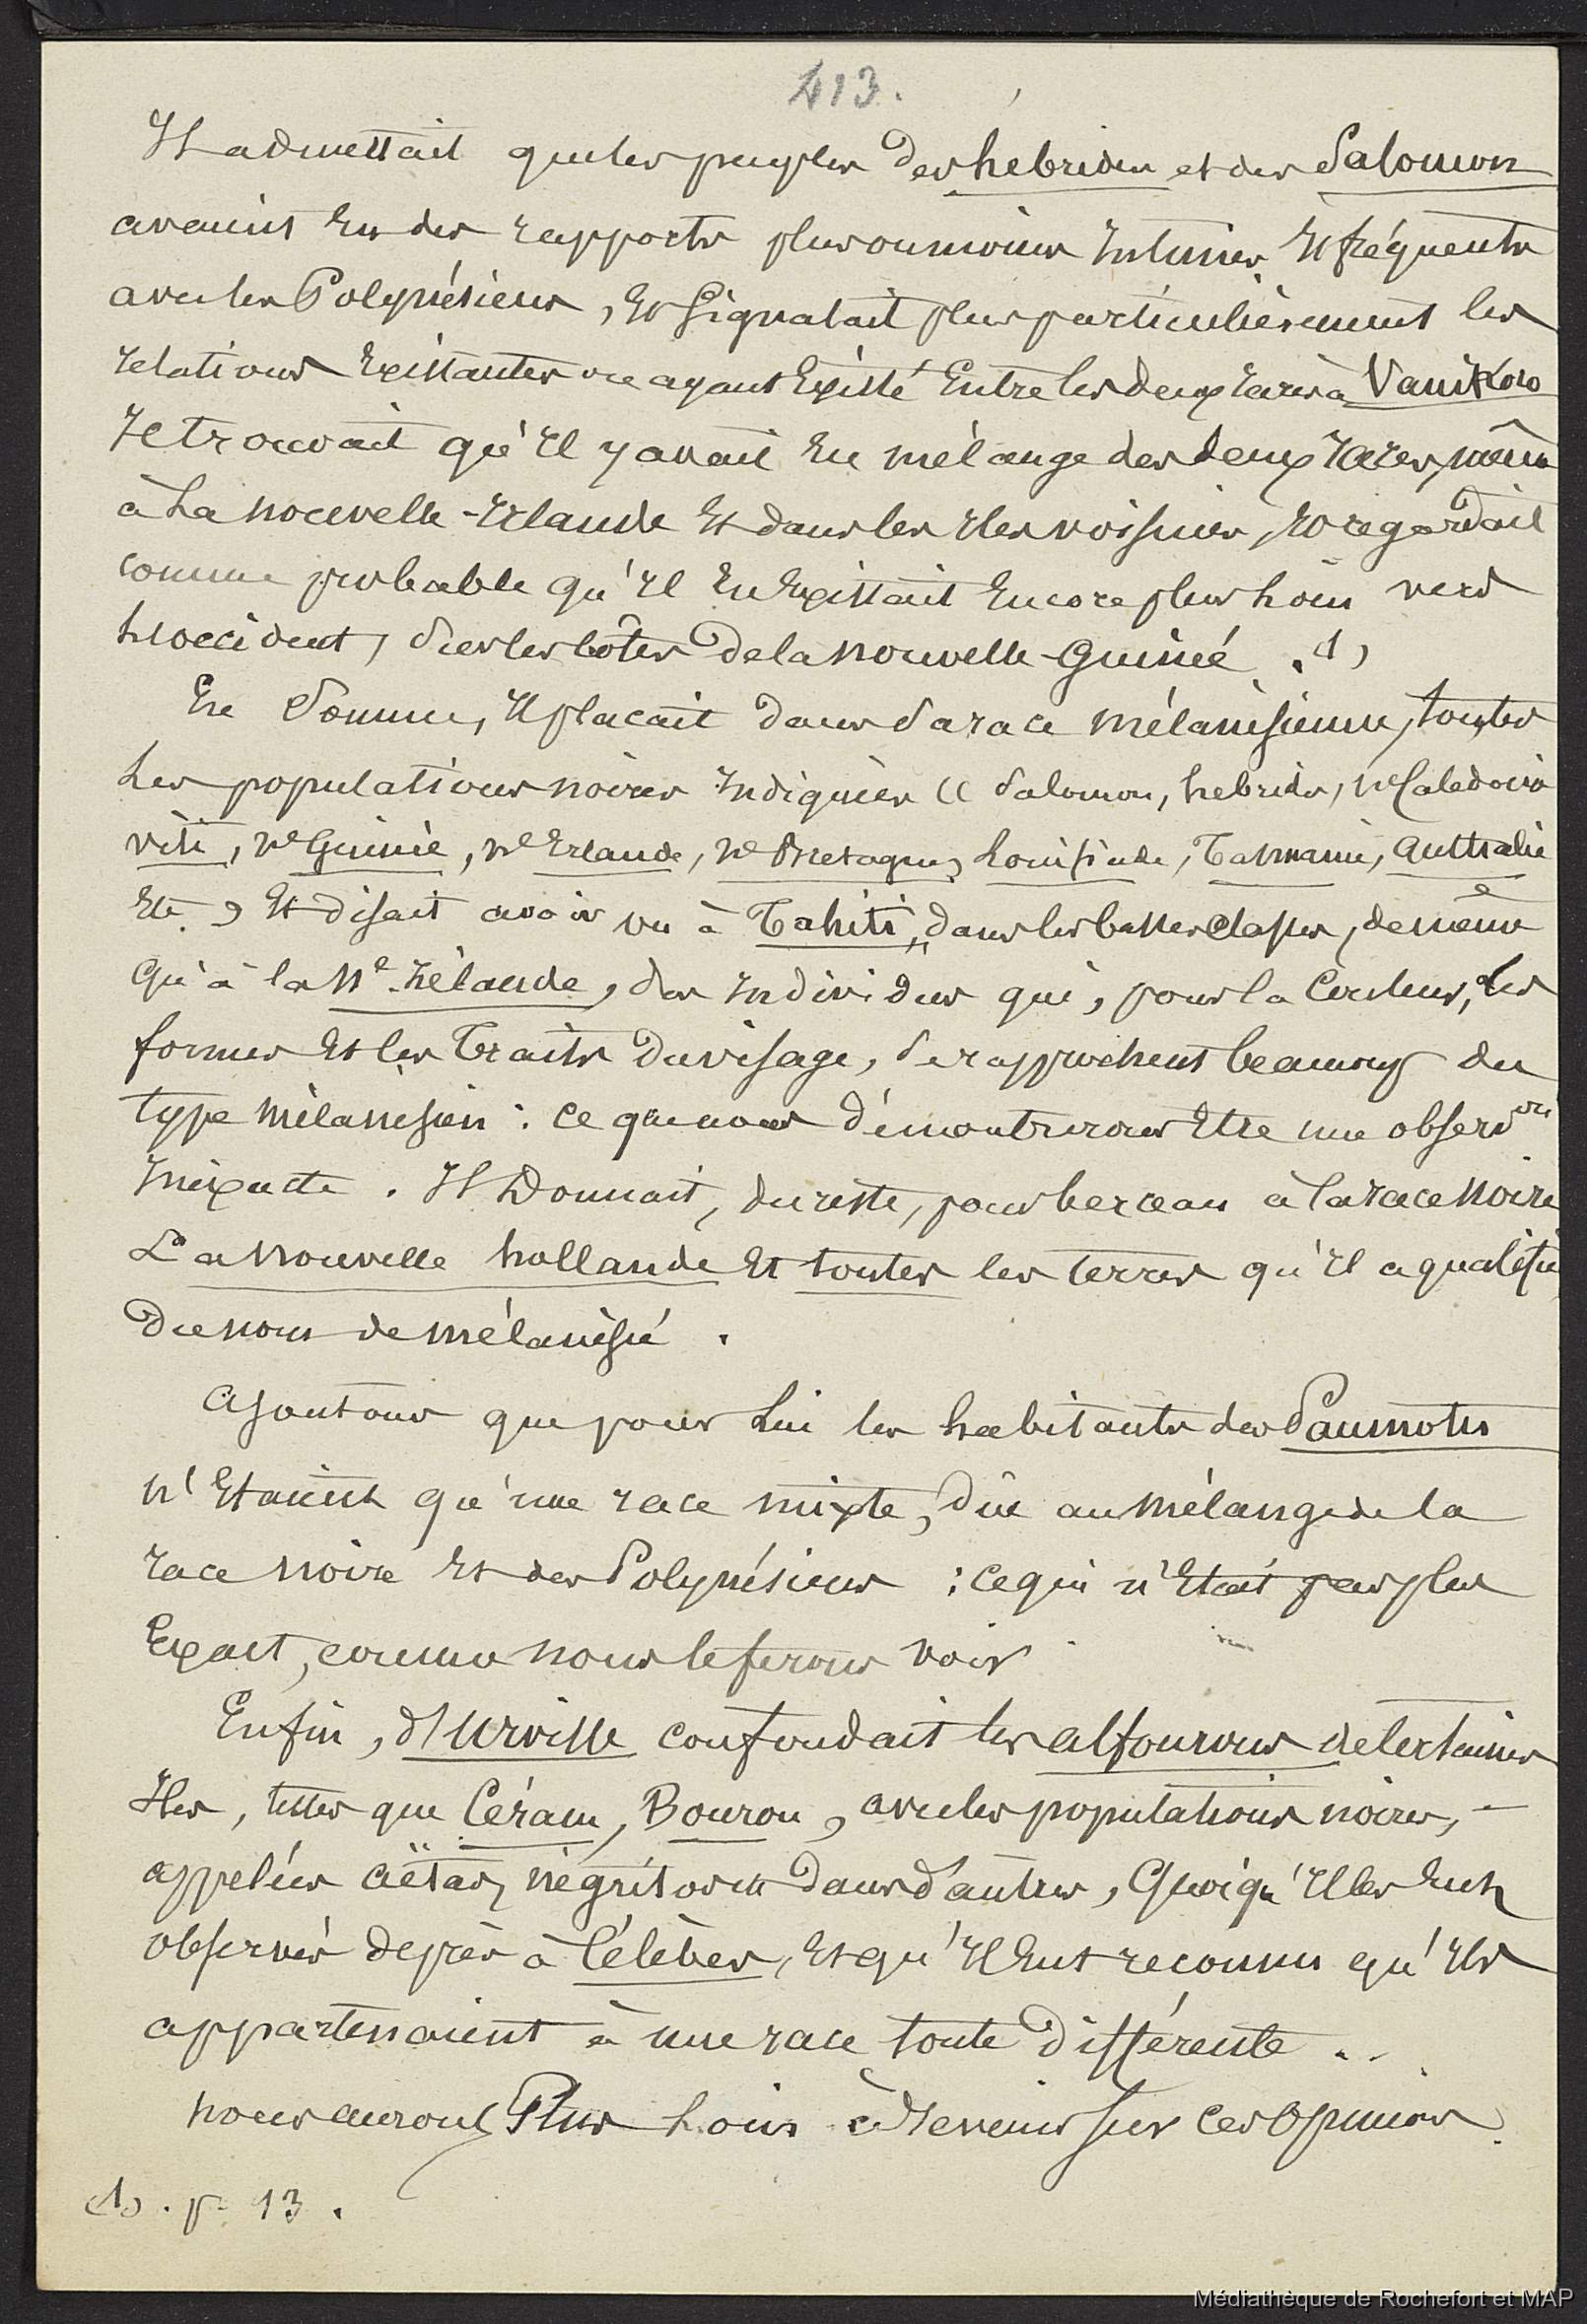 413.
Il admettait que les peuples des hébrides et des Salomon
avaient eu des rapports plus ou moins intimes et fréquents
avec les Polynésiens, et signalait plus particulièrement les
relations existantes ou ayant existé entre les deux races à Vanikoro
Il trouvait qu'il y avait eu mélange des deux races, même
à la nouvelle-Irlande et dans les Iles voisines, et regardait
comme probable qu'il en existait encore plus loin vers
l'occident, sur les côtes de la nouvelle-Guinée. (1)
En somme, il plaçait dans sa race mélanésienne, toutes
les populations noires indigènes (( Salomon, hebrides, Nle Calédonie
viti, Nle Guinée, Nle Irlande, Nle Bretagne, Louisiade, Tasmanie, Australie
etc. )) et disait avoir vu à Tahiti, dans les basses classes, de même
qu'à la Nle Zélande, des individus qui, pour la couleur, les
formes et les traits du visage, se rapprochent beaucoup du
type mélanésien : ce que nous démontrerons être une observon
inexacte. Il donnait, du reste, pour berceau à la race noire
La nouvelle hollande et toutes les terres qu'il a qualifié
du nom de mélanésie.
Ajoutons que pour lui les habitants des Paumotu
n'étaient qu'une race mixte, dûe au mélange de la
race noire et des Polynésiens : ce qui n'était pas plus
exact, comme nous le ferons voir
Enfin, d'Urville confondait les alfourous de certaines
Iles, telles que Céram, Bourou, avec les populations noires, -
appelées aëtas, négritos dans d'autres, quoiqu'il les eut
observés de près à Célèbes, et qu'il eut reconnu qu'ils
appartenaient à une race toute différente ..
nous aurons plus loin à revenir sur ces opinions.
(1). p. 13.
Médiathèque de Rochefort et MAP